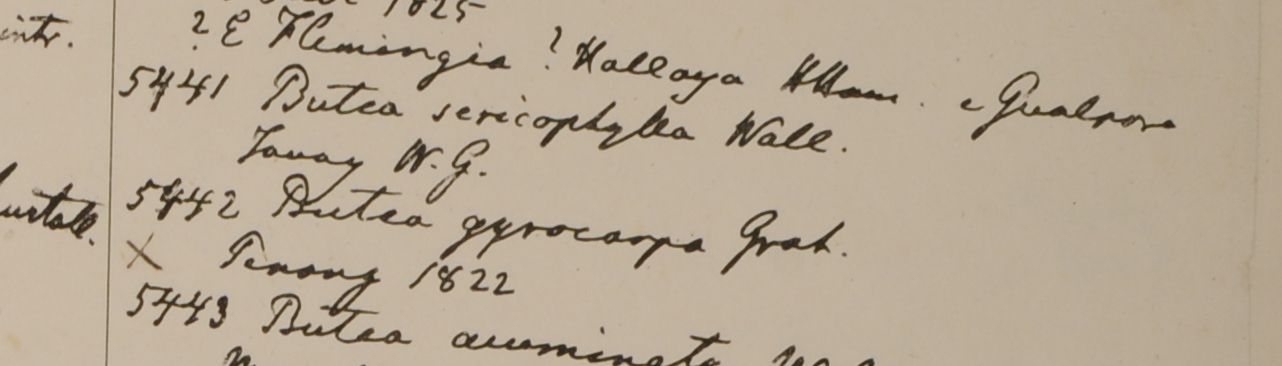 1825
intr.
? E Flemingia ? Kallaya HHam. e Gualpora
5441 Butea sericophylla Wall.
Tavoy W. G.
5442 Butea gyrocarpa Grah.
X Penang 1822
5443 Butea acuminata